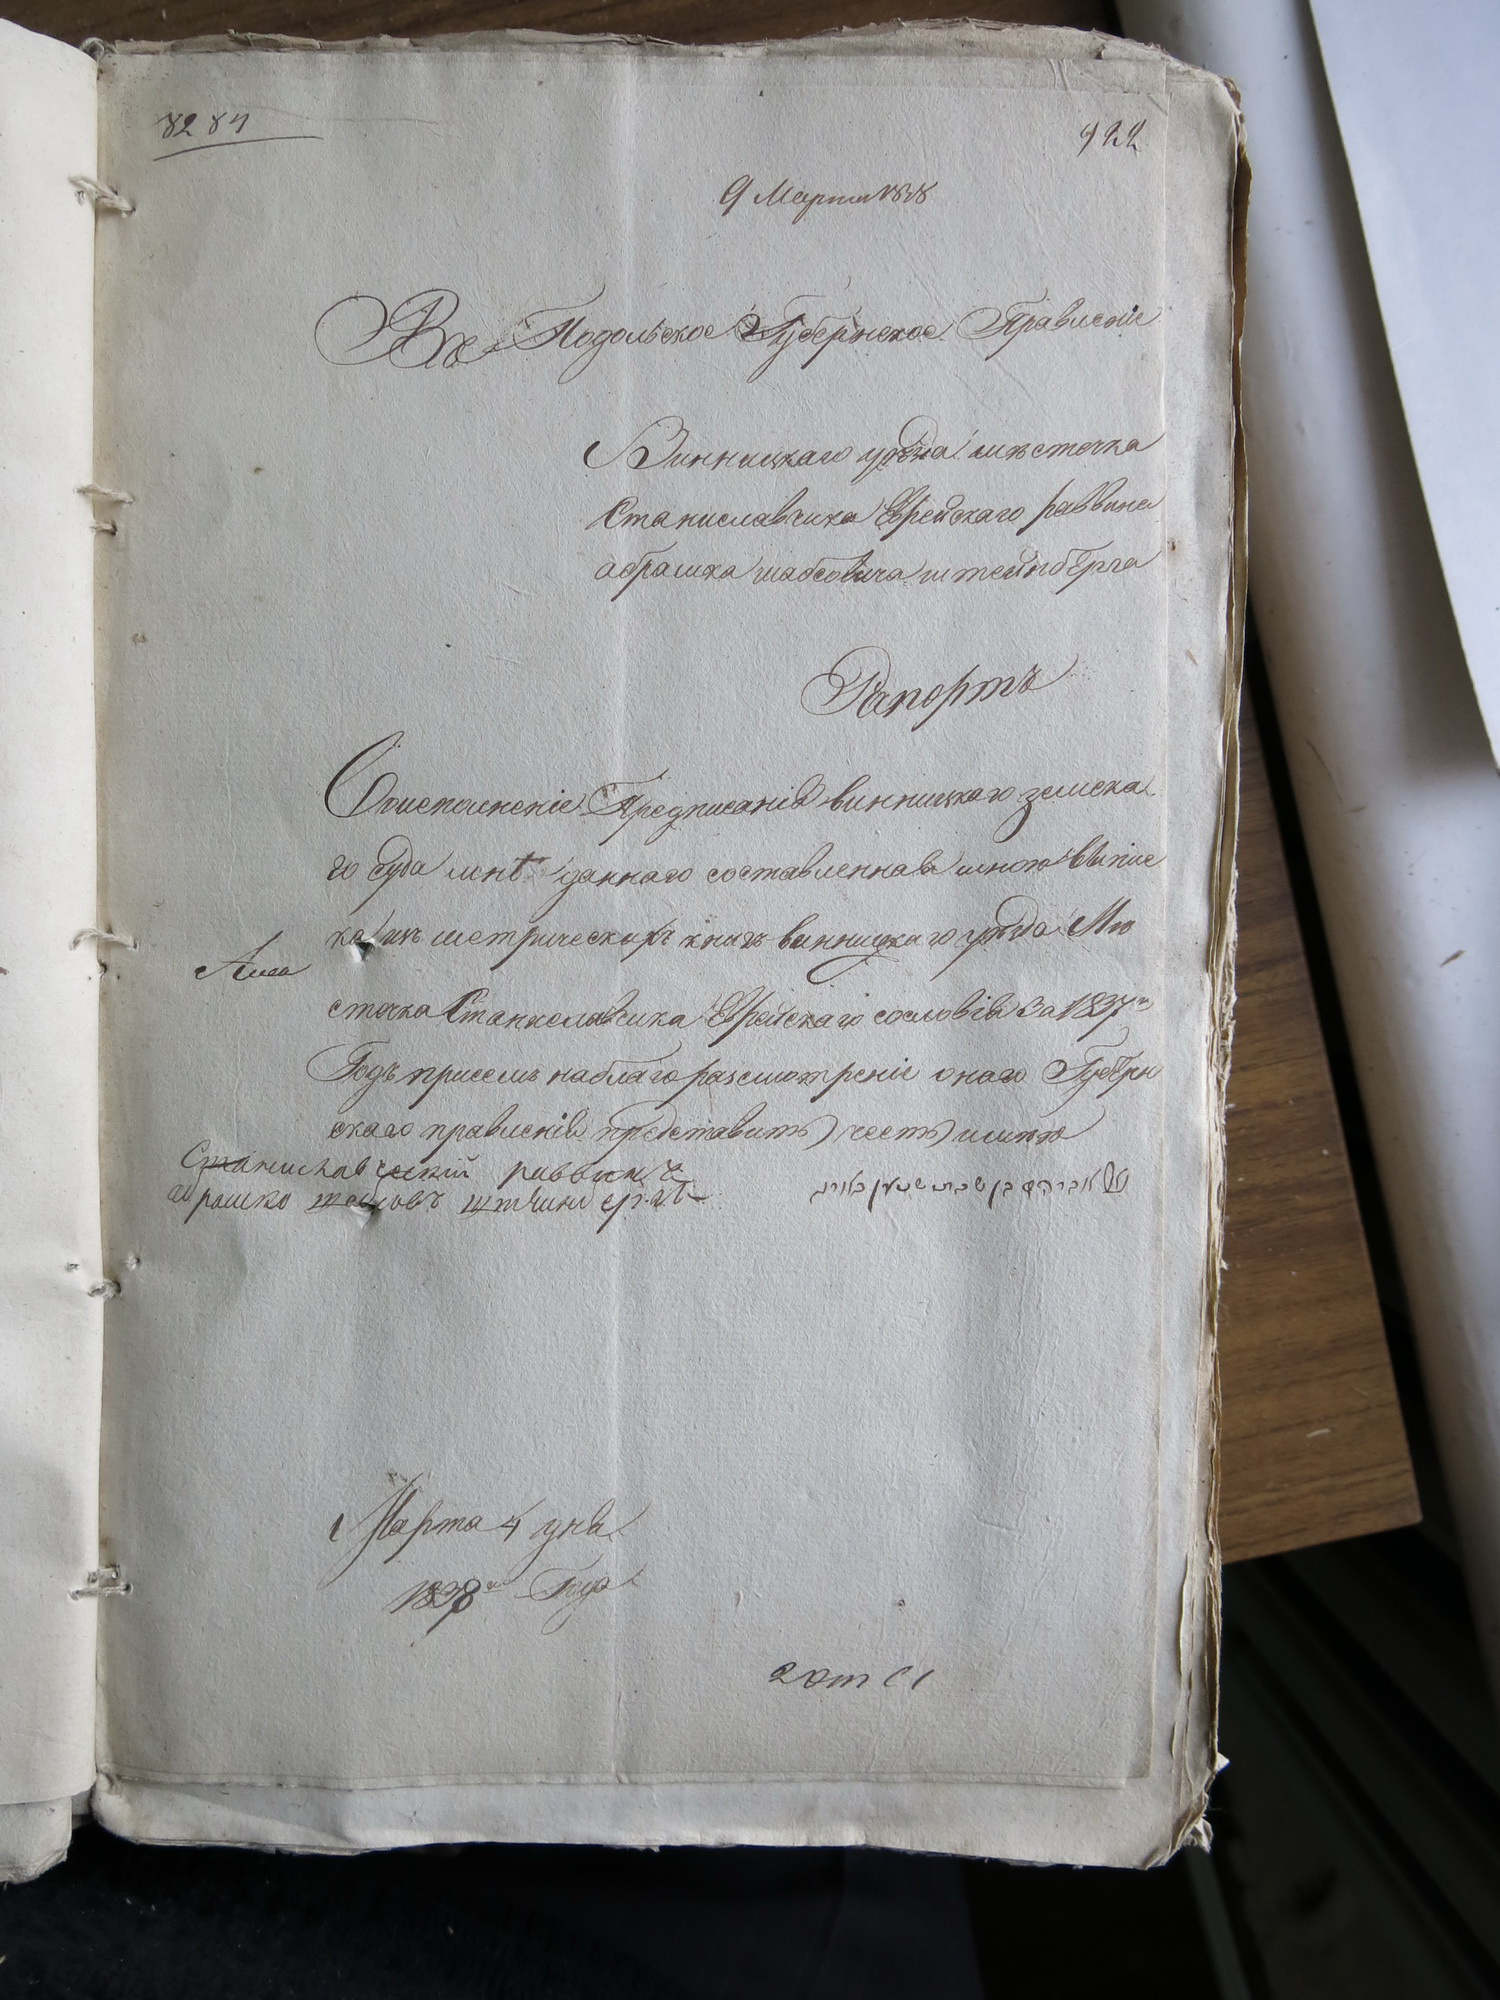 8284
922
9 Марта 1838
Въ Подольское Губернское Правление
Винницкаго уѣзда мѣстечка
Станиславчика Еврейскаго раввина
абрашка шабсовича штейнберга
Рапортъ
Воисполнение Предписанія винницкаго земска
го суда мнѣ даннаго составленная мною выпис
ка изъ метрическихъ книгъ винницкаго уѣзда Мѣ
стечка Станиславчика Еврейскаго сословія За 1837й
Годъ присемъ на благоразсмотрение онаго Губерн
скаго правленія представить честь имѣю
Станиславчский раввинъ
абрашко шабсовъ штейнбергъ
אברהם בן שבת
Марта 4 дня
1838го Года